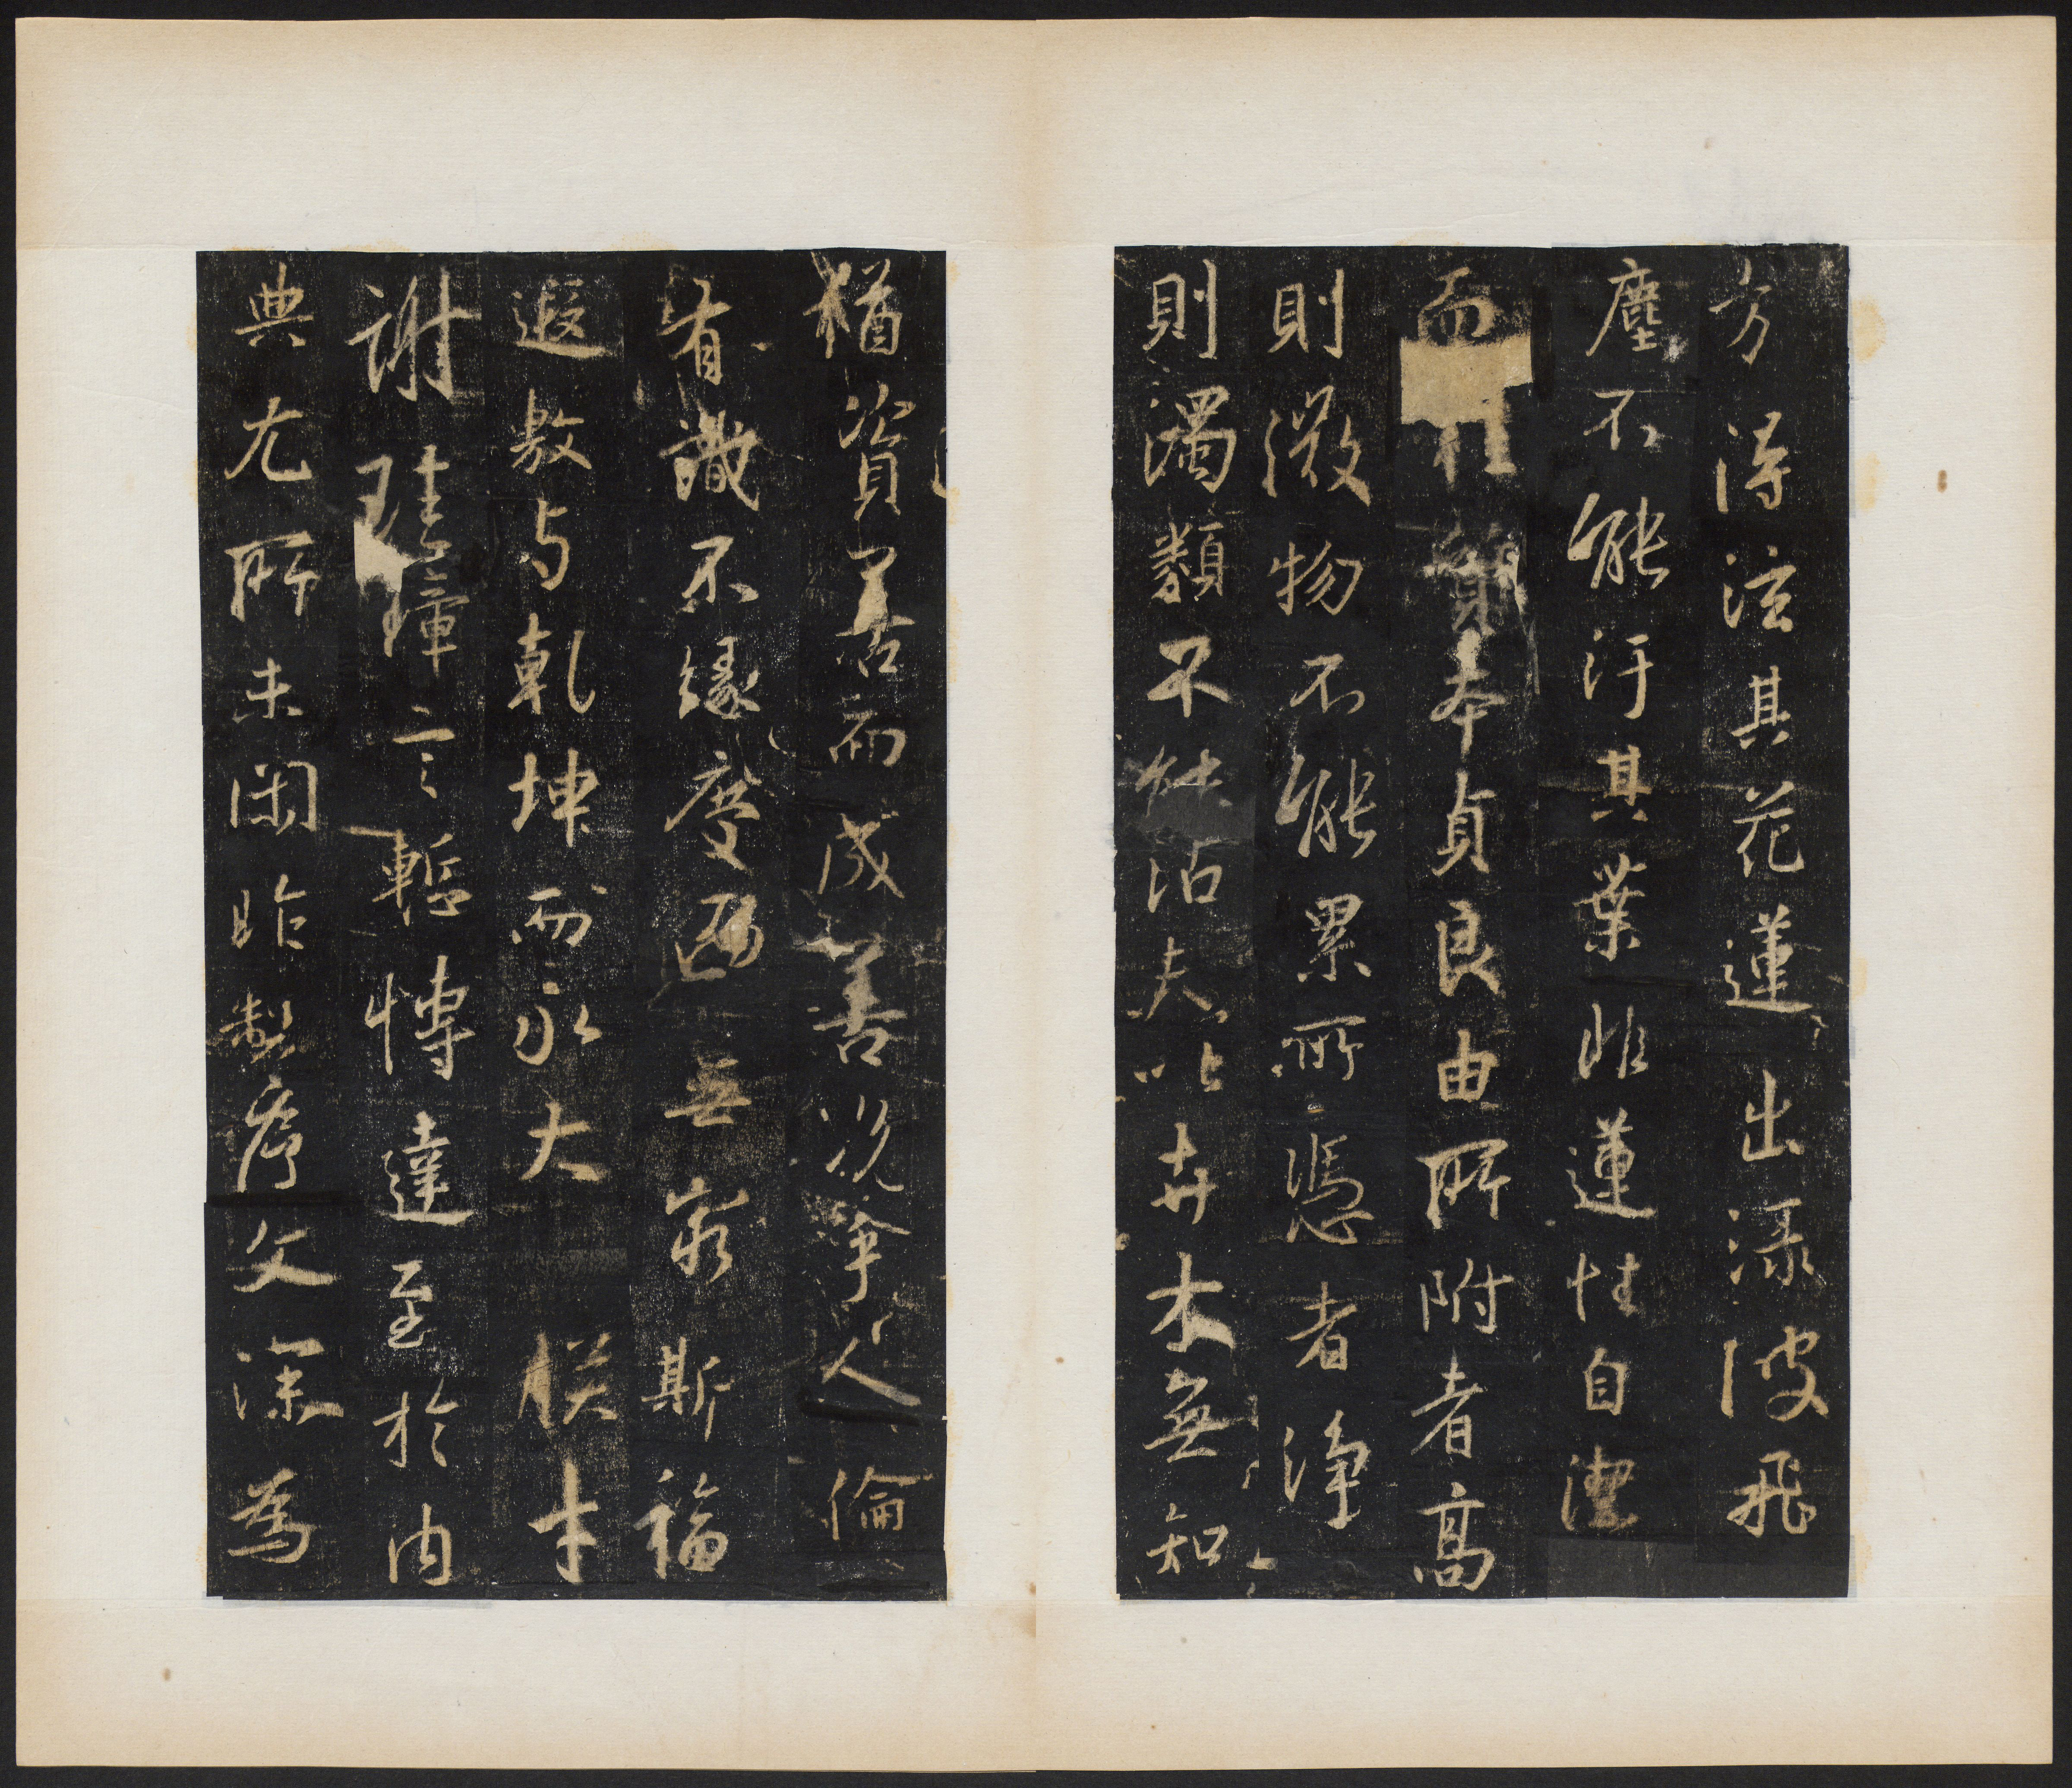 方得泫其花蓮出渌波飛
塵不能汙其葉非蓮性自潔
而桂質本貞良由所附者高
則微物不能累所憑者淨
則濁類不能沾夫以卉木無知
猶資善而成善況乎人倫
有識不緣慶而無窮斯福
遐敷与乾坤而永大朕才
謝珪璋言慙博達至於內
典尤所未閑昨製序文深為